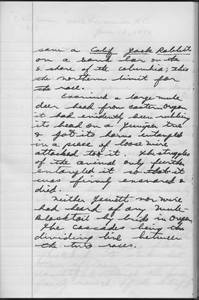 saw a Calif Jack Rabbit
on a sand bar on the
shore of the columbia; this
the northern limit for
the race.
Examined a large mule
deer head from eastern Oregon
it had evidently been rubbing
its head on a Juniper tree
& got its horns entangled
in a piece of loose wire
attached to it. The struggles
of the animal only further
entangled it so that it
was firmly ensnared &
died.
Neither Jewett nor were
had heard of any Mule-
blacktail hybrids in Oregon
The cascades being the
dividing line between
the two races.